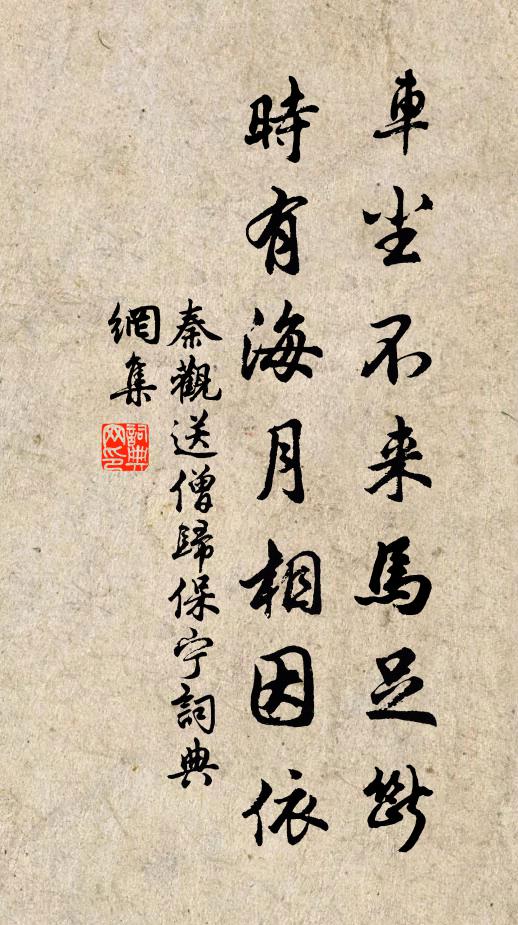 車尘不来馬足斷
時有海月相因依
秦觀送僧歸保宁詞典
網集
詞典网印